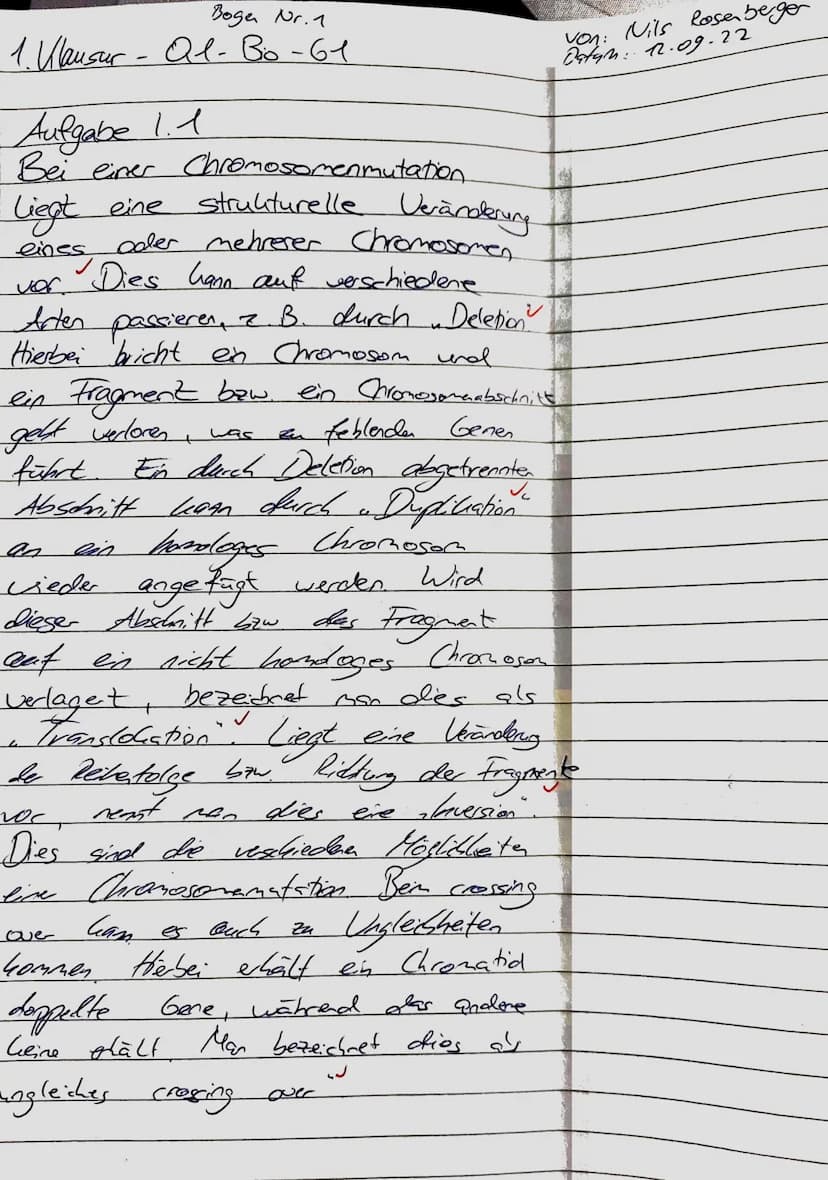 Bogen Nr. 1
von: Nils Rosenberger
Datum: 12.09.22
1. Klausur - Q1 - Bio - G1
Aufgabe 1.1
Bei einer Chromosomenmutation
liegt eine strukturelle Veränderung
eines oder mehrerer Chromosomen
vor. Dies kann auf verschiedene
Arten passieren, z.B. durch „Deletion"
Hierbei bricht ein Chromosom und
ein Fragment bzw. ein Chromosomenabschnitt
geht verloren, was zu fehlenden Genen
führt. Ein durch Deletion abgetrennter
Abschnitt kann durch „Duplikation"
an ein homologes Chromosom
wieder angefügt werden. Wird
dieser Abschnitt bzw das Fragment
auf ein nicht homologes Chromosom
verlagert, bezeichnet man dies als
„Translokation". Liegt eine Veränderung
der Reihenfolge bzw. Richtung der Fragmente
vor, nennt man dies eine „Inversion".
Dies sind die verschiedenen Möglichkeiten
einer Chromosomenmutation. Beim crossing
over kann es auch zu Ungleichheiten
kommen. Hierbei erhält ein Chromatid
doppelte Gene, während das andere
keine erhält. Man bezeichnet dies als
ungleiches crossing over"